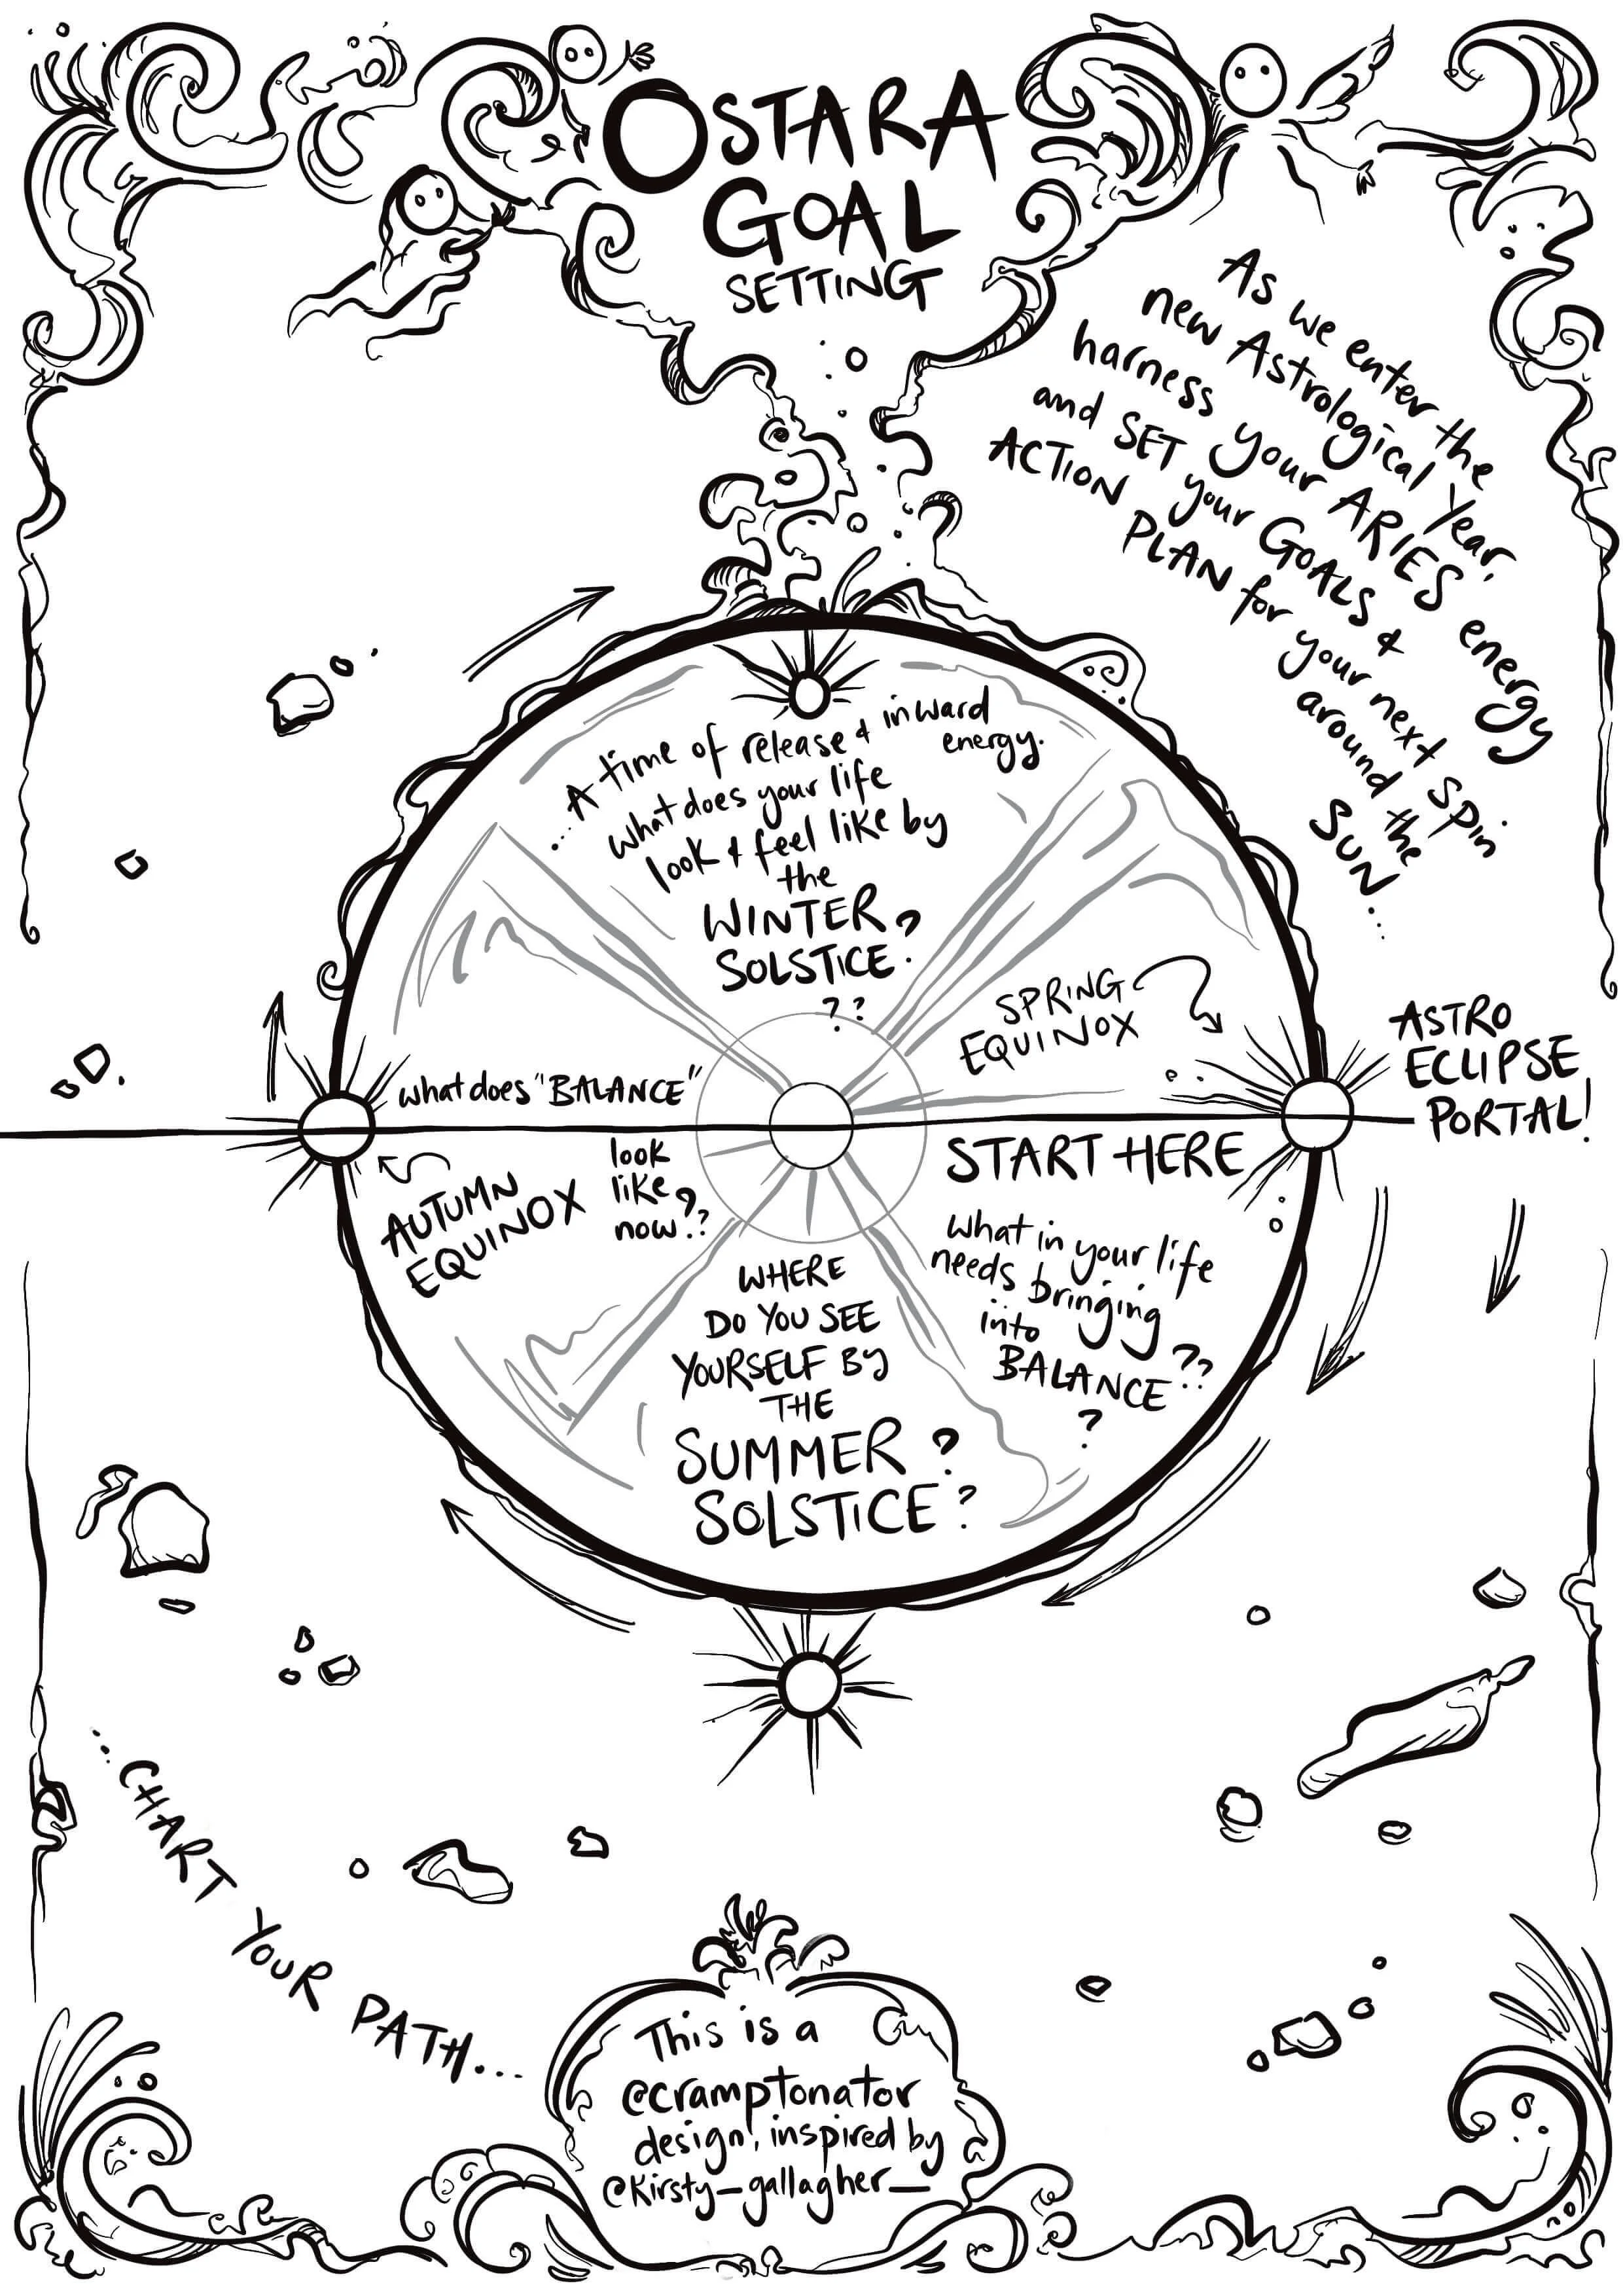 OSTARA
GOAL
SETTING
As we enter the
new Astrological Year,
harness your ARIES energy
and SET your GOALS &
ACTION PLAN for your next spin
around the
SUN...
...A time of release & inward
energy.
What does your life
look & feel like by
the
WINTER
SOLSTICE??
??
SPRING
EQUINOX
ASTRO
ECLIPSE
PORTAL!
START HERE
What in your life
needs bringing
into
BALANCE???
?
WHERE
DO YOU SEE
YOURSELF BY
THE
SUMMER?
SOLSTICE?
what does "BALANCE"
look
like
now???
AUTUMN
EQUINOX
...CHART YOUR PATH...
This is a
@cramptonator
design!, inspired by
@kirsty_gallagher_